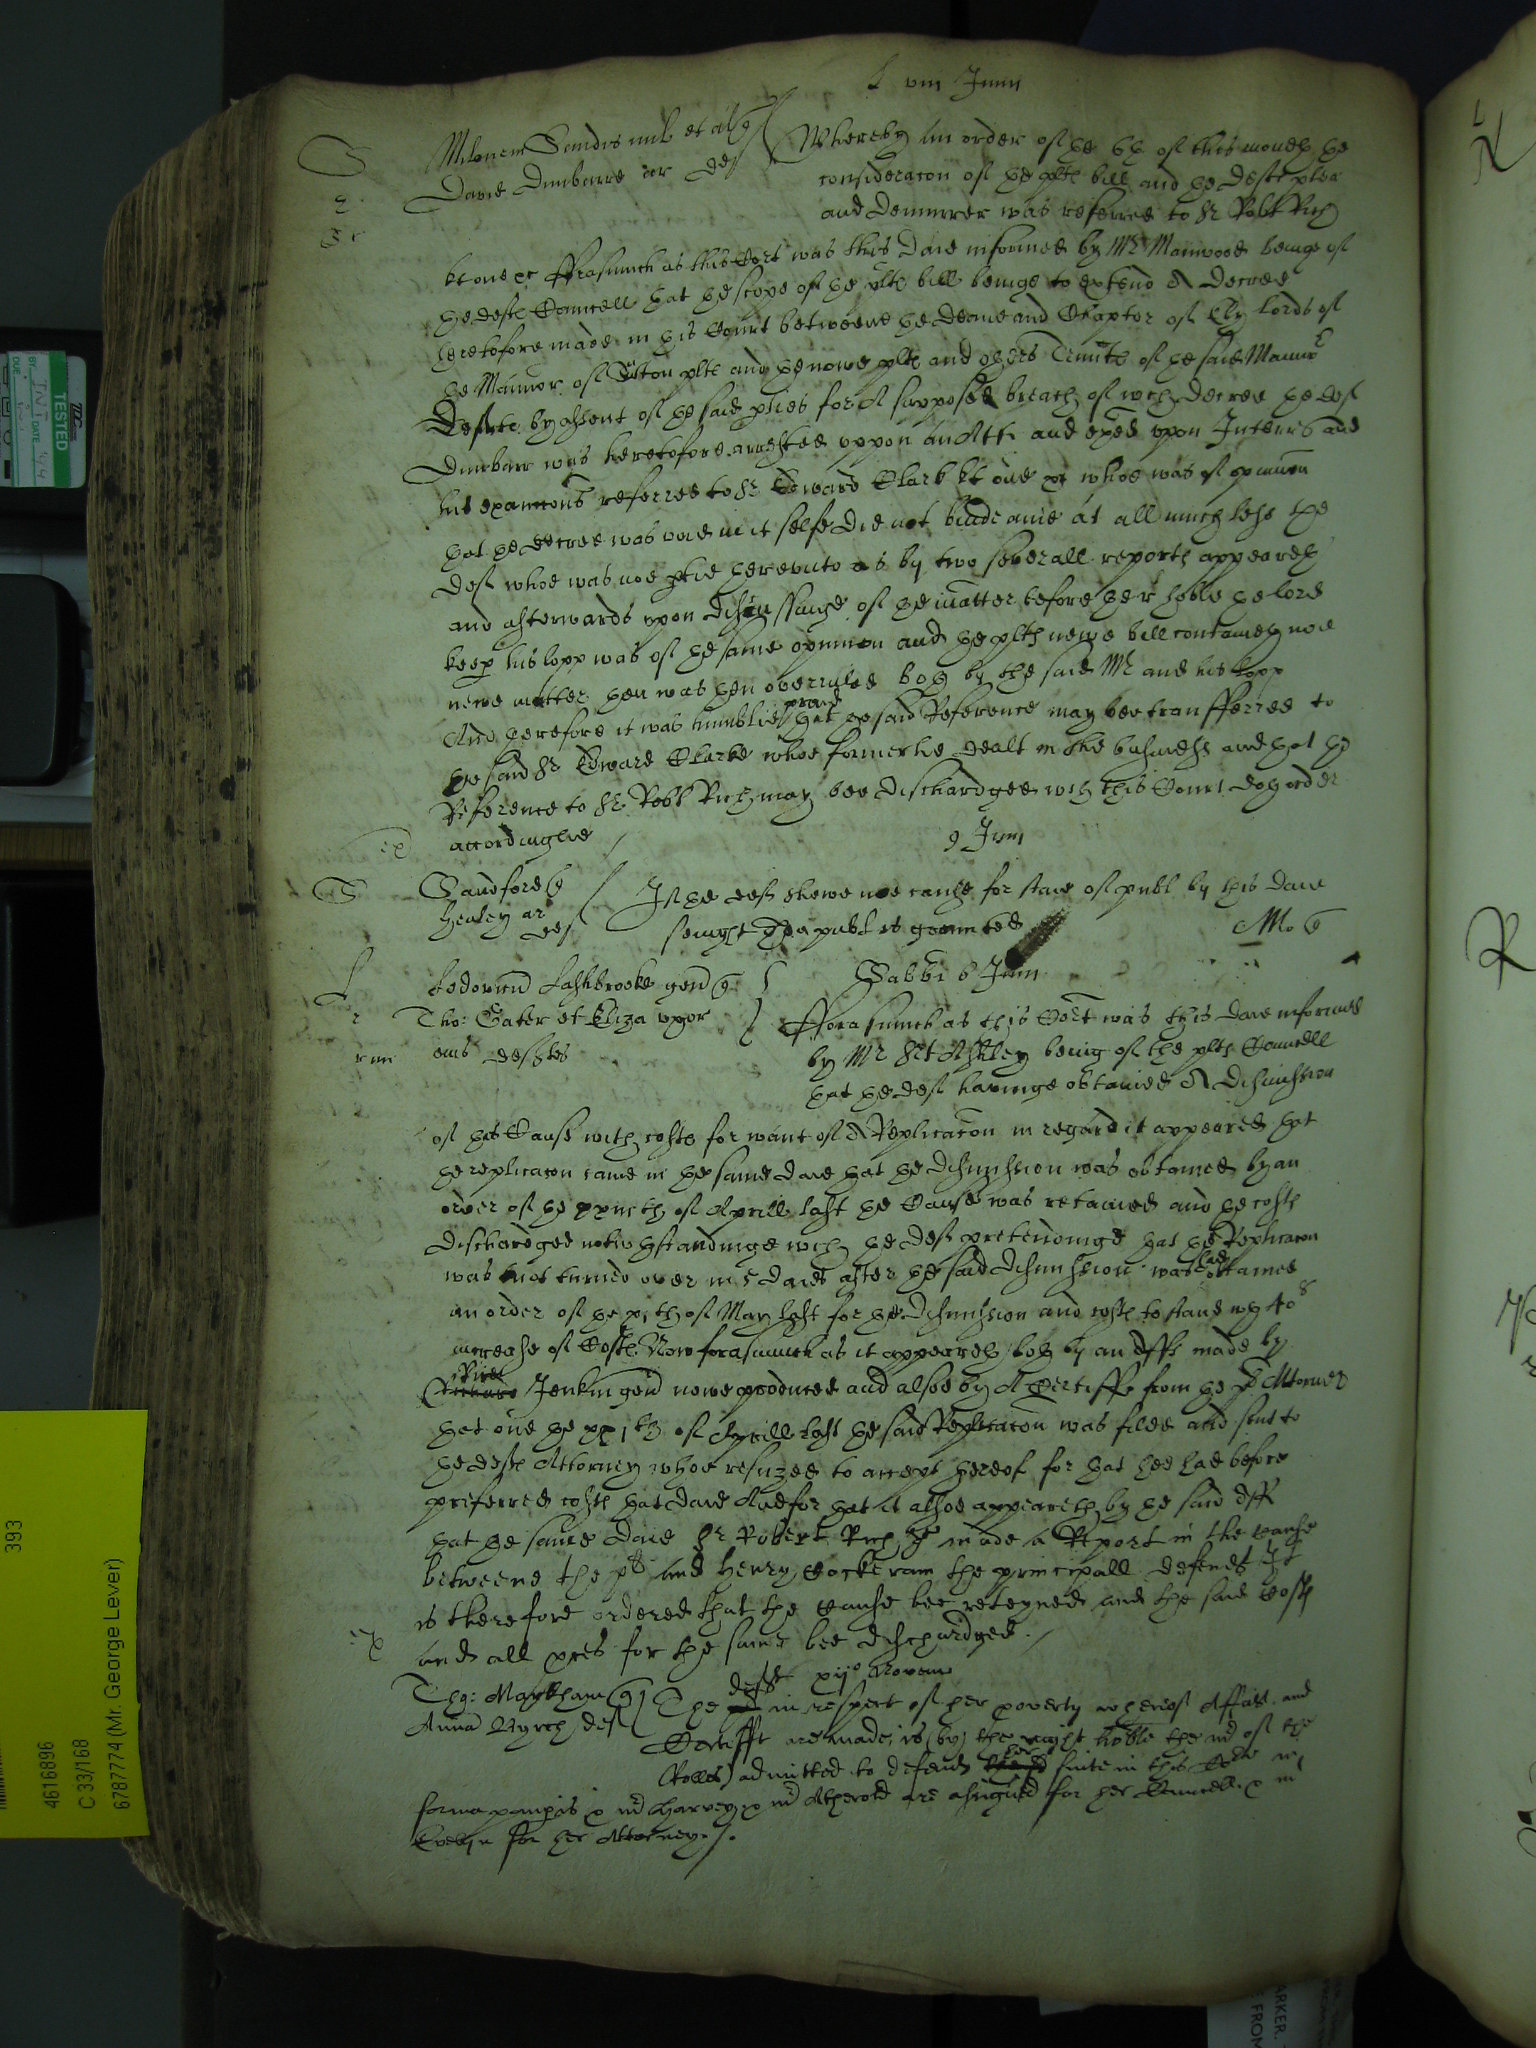 L viii Junii
Milonem Sandis mil et al q
David Dunbarre ar def
Whereby an order of the 6th of this moneth the
consideracon of the plts bill and the defts plea
and demurrer was referred to Sr Robt Rich
kt one &c Fforasmuch as this Cort was this daie informed by Mr Manwood being of
the defts Councell that the scope of the plts bill beinge to extend A decree
heretofore made in this Court betweene the Deane and Chapter of Ely lords of
the Mannor of Sutton plts and the nowe plts and others Tennts of the said Mannor
Defente by assent of the said pties for A supposed breach of wch decree the def
Dunbarr was heretofore arrested uppon an Att and exed upon Interrs and
his examcons referred to Sr Edward Clark kt one &c whoe was of opinion
that the decree was void in it selfe did not binde anie at all much lesse the
def whoe was noe ptie thereunto as by two severall reports appeareth
and afterwards upon discussinge of the matter before the r hoble the lord
keeper his lopp was of the same opinion and the plts newe bill contaieth noe
newe matter then was then overruled both by the said Mr and his lopp
And therefore it was humblie praied that the said Reference may bee transferred to
the said Sr Edward Clarke whoe formerlie dealt in the busines and that the
Reference to Sr Robt Rich may bee dischardged wch this Court doth order
accordinglie
9 Junii
Sandford q
Healey ar def
If the deft shewe noe cause for staie of publ by this daie
sennight then publ is graunted
M. 6
Lodovicu Lashbrooke gen q
Sabbi 6 Junii
Tho: Cater et Eliza uxor
eius deftes
Fforasmuch as this Cort was this daie informed
by Mr Frt Ashley being of the plts Councell
that the deft havinge obtained A dismission
of this Cause with costs for want of A Replicacon in regard it appeared that
the replicacon came in the same daie that the dismission was obtained by an
order of the xxviith of Aprill last the Cause was retained and the costs
dischardged notwthstandinge wch the deft pretendinge that the Replicacon
was not turned over in 5 daies after the said dismission was had obtained
an order of the xith of May last for the dismission and costs to stand wth 40s
increase of Costs Now forasmuch as it appeareth both by an Afft made by
Jenkin gen nowe produced and alsoe by A Certiffte from the plts Attorney
that one the xxith of Aprill last the said Replicacon was filed and sent to
the defts Attorney whoe refuzed to accept thereof for that hee had before
preferred costs that daie And for that it alsoe appeareth by the said Aff
that the same daie Sr Robert Rich kt made a Report in the cause
betweene the plt and Henry Cockeram the principall defendt It
is therefore ordered that the cause bee reteyned and the said costs
and all pces for the same bee dischardged
xiio Novem
Tho: Markham q
Anna Byrch def
The deft in respect of her poverty whereof Affid and
Certifft are made is (by the right hoble the mr of the
Rolles) admitted to defend her suite in this Corte in
forma pauperis & mr Harvey & mr Atherold are assigned for her Councell & mr
Evelyn for her Attorney
TESTED
393
4616896
C 33/168
6787774 (Mr. George Lever)